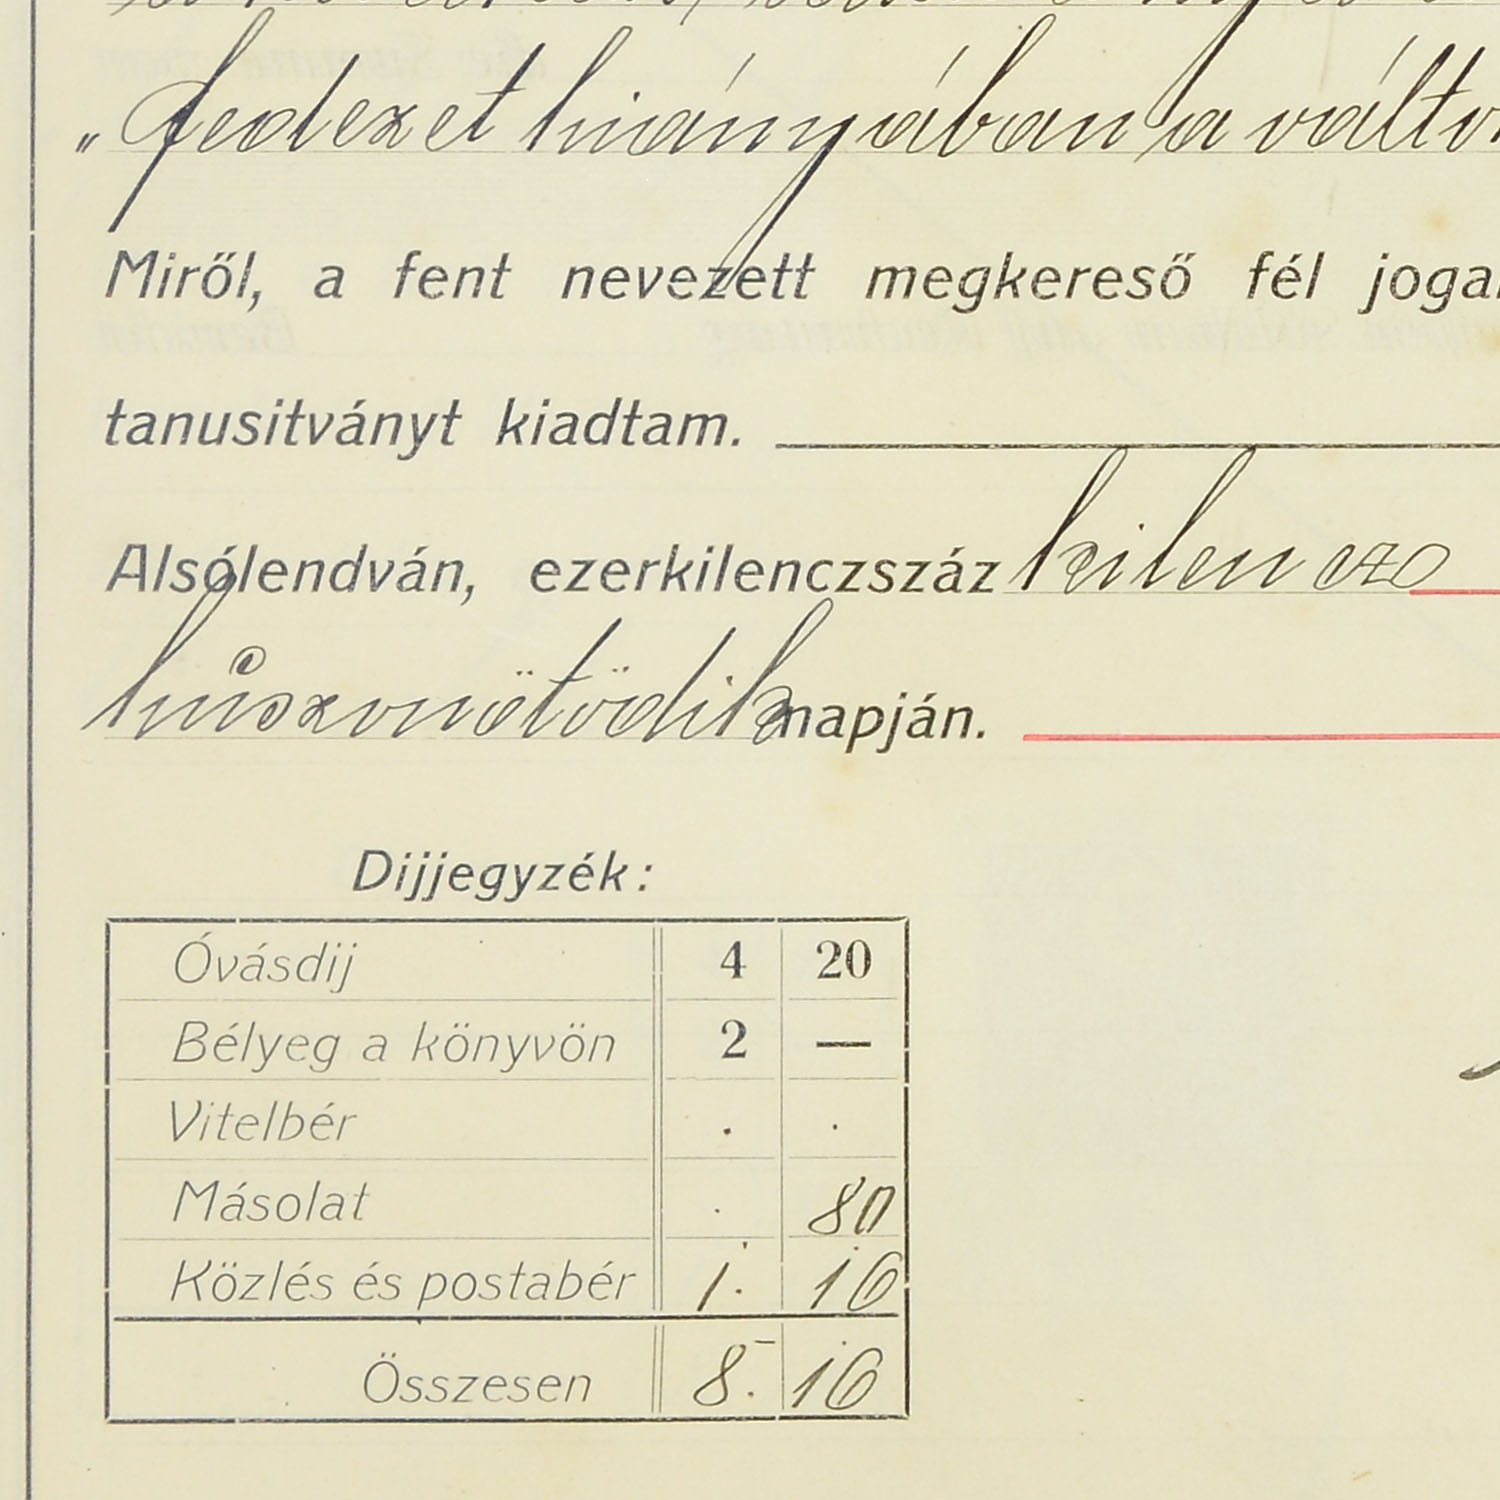 „fedezet hiányában a válto
Miről, a fent nevezett megkereső fél joga
tanusitványt kiadtam.
Alsólendván, ezerkilenczszáz kilencz
húszonötödik napján.
Dijjegyzék:
Óvásdij 4 20
Bélyeg a könyvön 2 —
Vitelbér . .
Másolat . 80
Közlés és postabér 1. 16
Összesen 8. 16